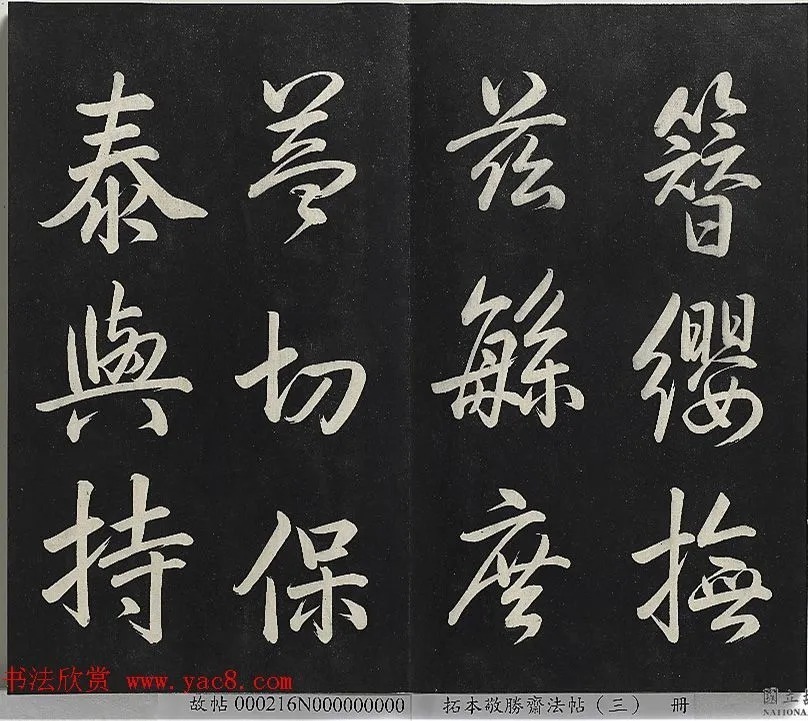 簪纓撫
茲繁庶
益切保
泰與持
书法欣赏 www.yac8.com
故帖 000216N000000000
拓本敬勝齋法帖（三） 冊
國立